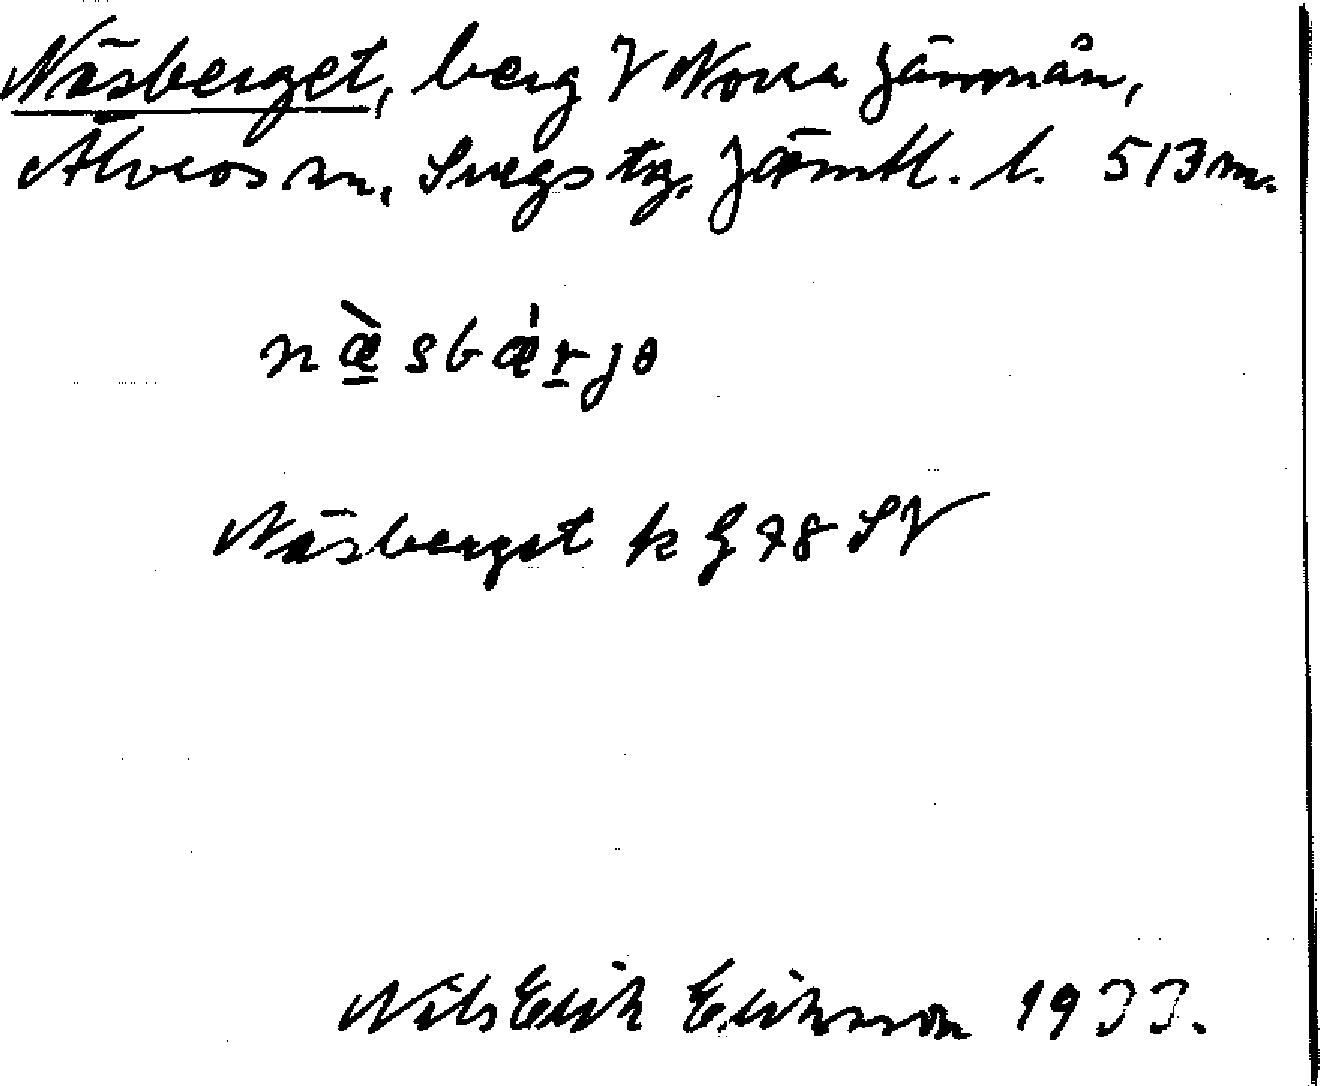 Näsberget, berg V Norra Jämnån,
Älvros sn, Svegs tg, Jämtl. l. 513 m.
næ̀sbæ̍rjə
Näsberget k G 78 SV
Nils Erik Eriksson 1933.